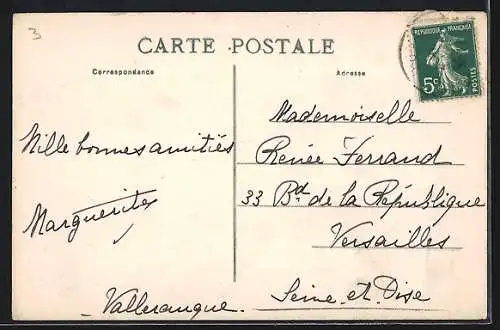 3
CARTE POSTALE
Correspondance
Mille bonnes amitiés
Marguerite
Valleraugue.
Adresse
Mademoiselle
Renée Ferrand
33 Bd de la République
Versailles
Seine et Oise
RÉPUBLIQUE FRANÇAISE
5c
POSTES